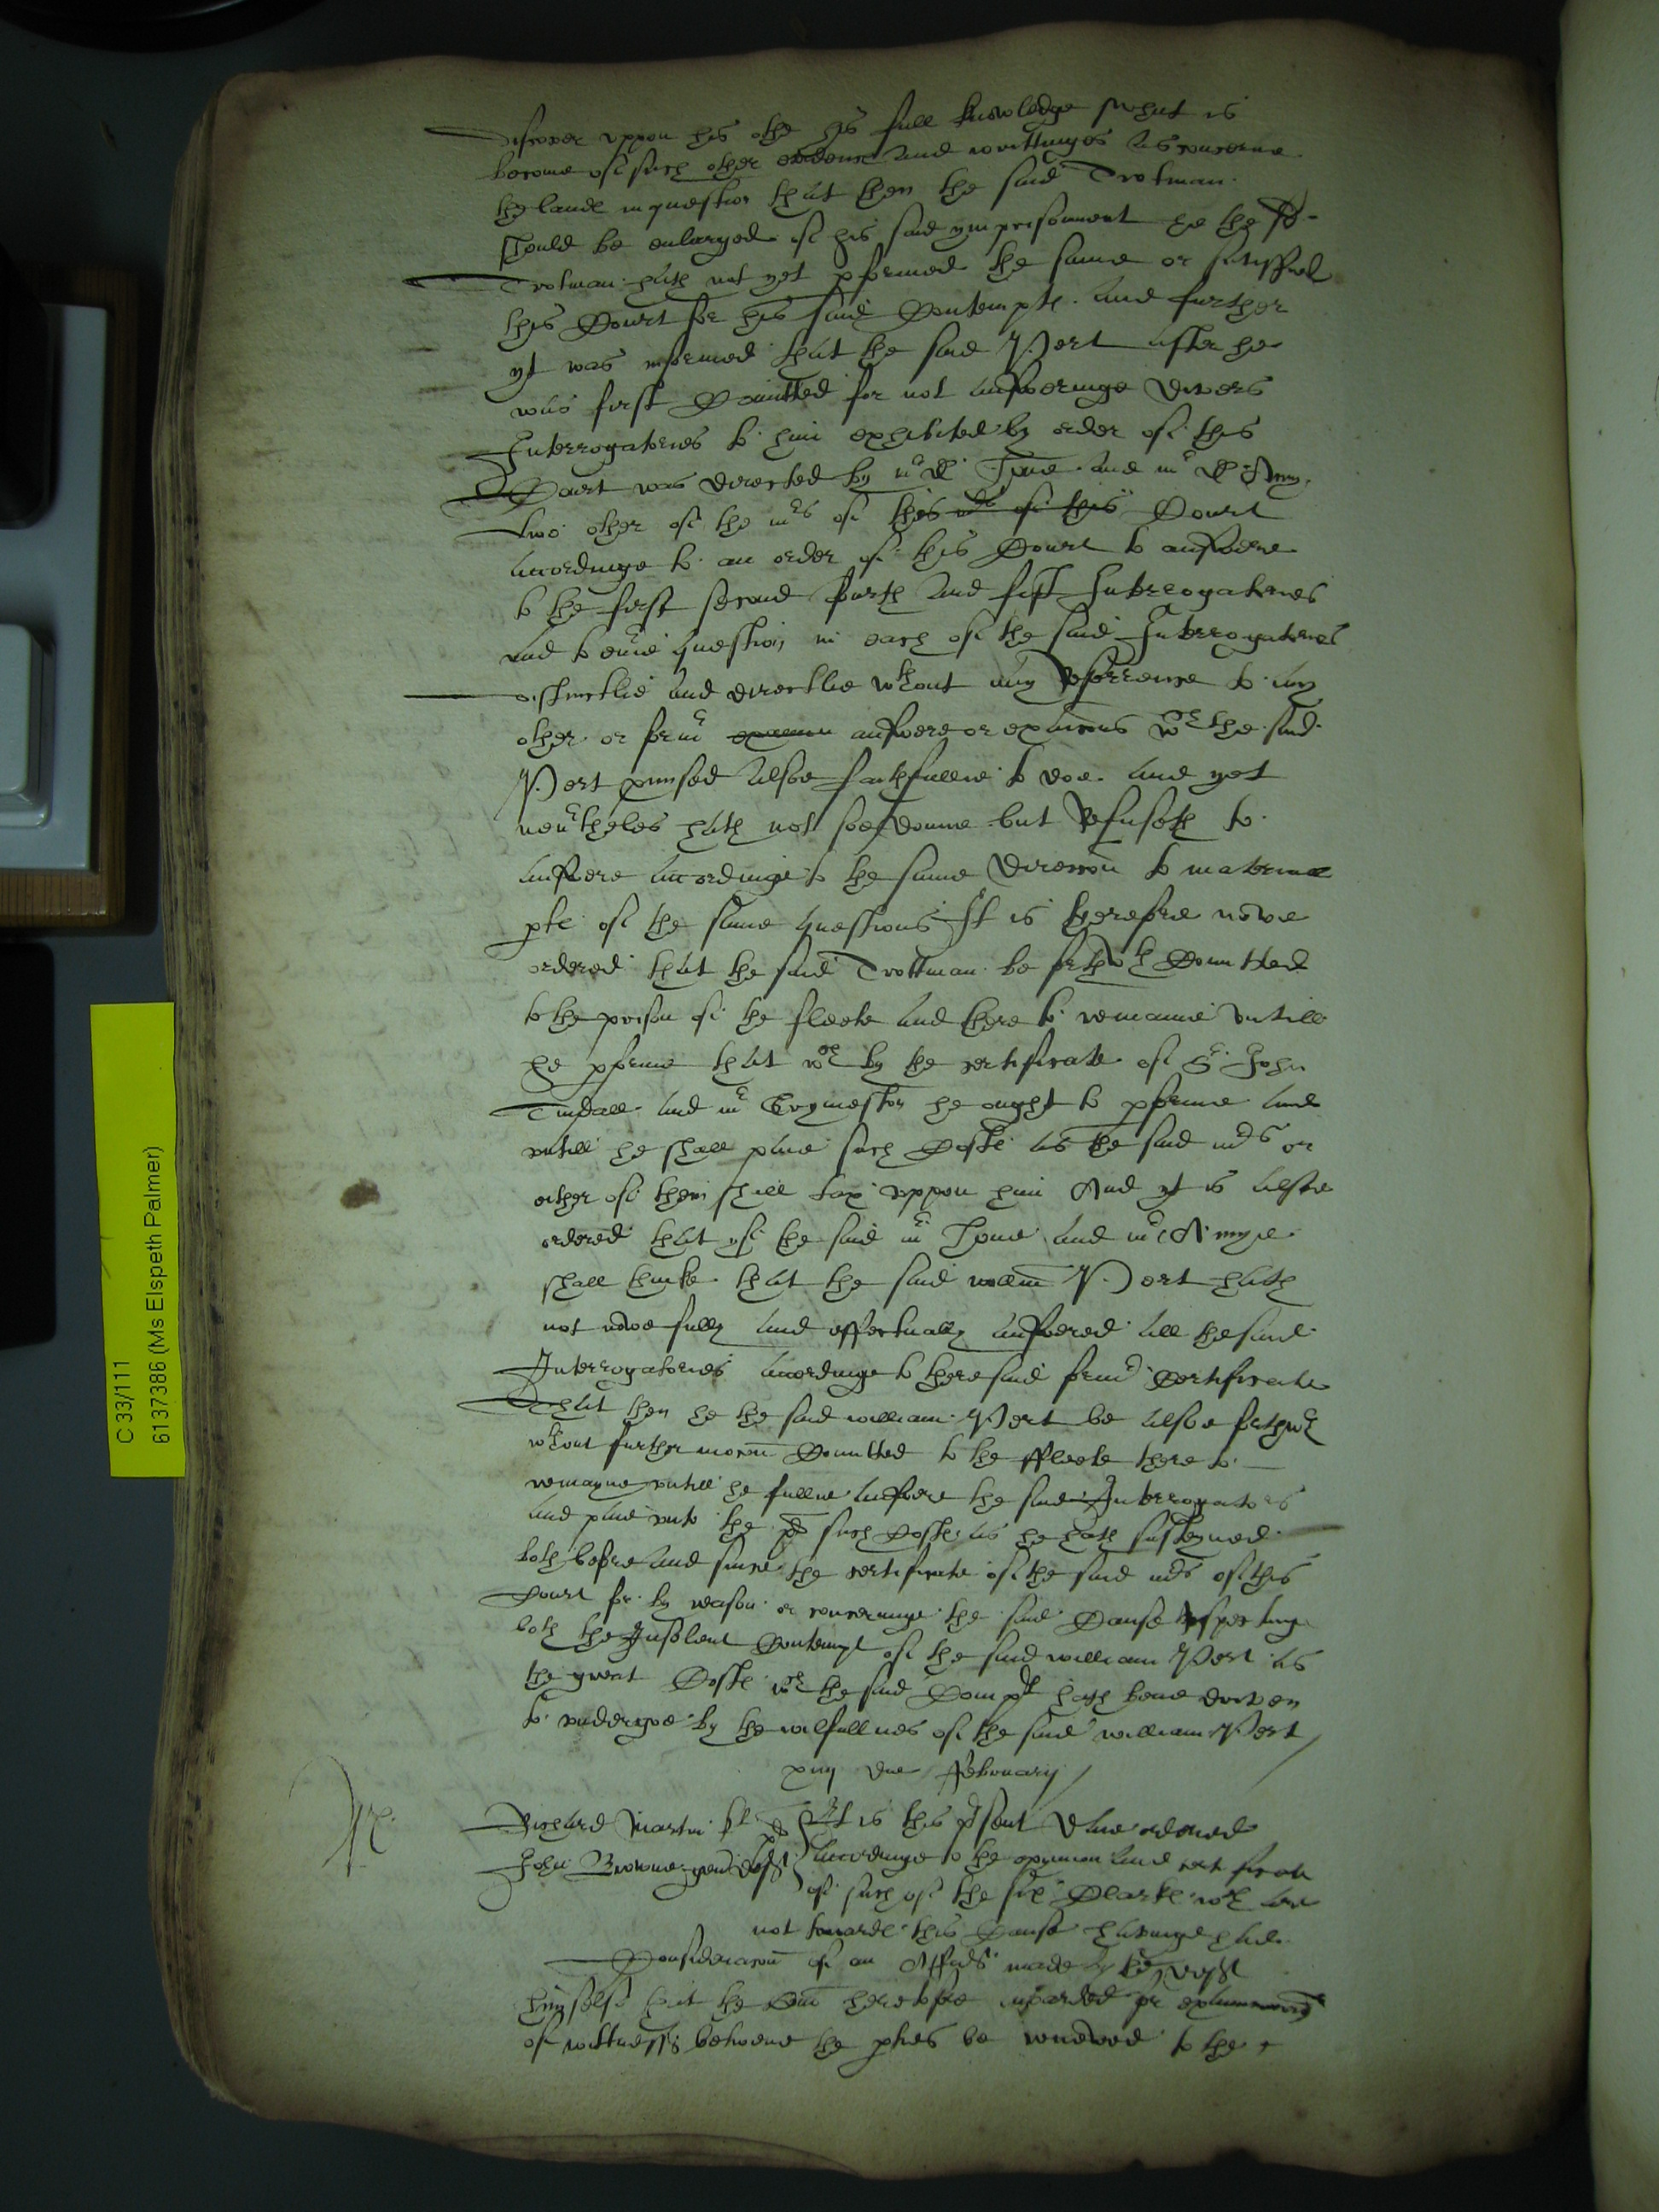 discover uppon his othe his full knowledge what is
become of such other evidenc and writtinges as concerne
the lande in question that then the said Trotman
should be enlarged of his said ymprisonment he the sd
Trotman hath not yet pformed the same or satisfied
this Court for his said Contempte. And further
yt was informed that the said Pert after he
was first Comitted for not answeringe divers
Interrogatories to him exhibited by order of this
Court was directed by mr D Hone and mr D Amy
two other of the mrs of this mr of this Court
accordinge to an order of this Court to answere
to the first second fourth and fift Interrogatories
and to euie question in each of the said Interrogatories
distinctlie and directlie wthout any Refference to any
other or formr answere or exaicons wch the said
Pert pmised alsoe faithfullie to doe. And yet
neurtheles hath not soe donne but Refuseth to
answere accordinge to the same direccon to materiall
pte of the same questions It is therefore nowe
ordered that the said Trottman be forthwth Committed
to the prison of the fleete and there to remaine untill
he pforme that wch by the certificate of Sr John
Tindall and mr Grymeston he ought to pforme and
untill he shall paie such Coste as the said mrs or
either of them shall tax uppon him And yt is alsoe
ordered that yf the said mr Hone and mr Amye
shall thinke that the said willm Pert hath
not nowe fully and effectually answered all the said
Interrogatories accordinge to there said formr Certificate
That then he the said william Pert be alsoe forthwth
wthout further mocon Comitted to the ffleete there to
remayne untill he fullie answere the said Interrogators
and paie unto the pl such Coste as he hath susteyned
both before and since the certificate of the said mrs of this
Court for by reason or concerninge the said Cause Respecting
both the Insolent Contempt of the said william Pert as
the great Coste wch the said Complt hath bene driven
to undergoe by the wilfullnes of the said william Pert
xiiij die February
Richard Martin kt pl It is this psent daie ordered
John Browne gen deft accordinge to the opynion and certificate
of such of the six Clarke wch are
not towarde this Cause havinge had
Consideracon of an Affidt made by the deft
himselfe that the Com heretofore awarded for examinacon
of wittnesses betwene the pties be renewed to the